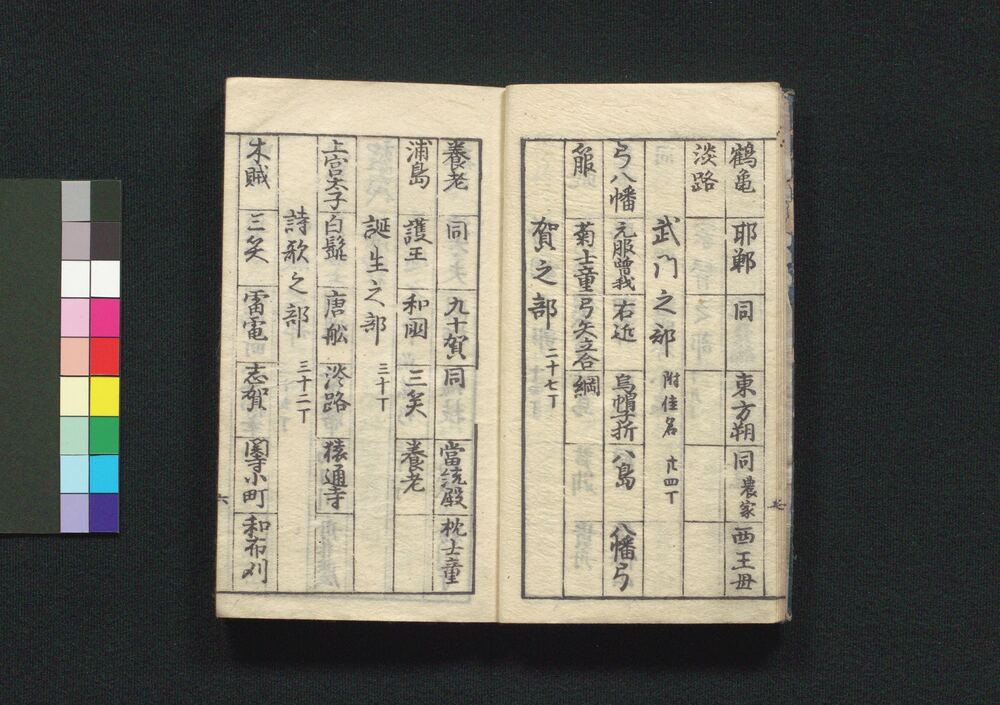 鶴亀 耶郸 同 東方朔 同 農家 西王母
淡路
武門之部 附佳名 廿四丁
弓八幡 元服曽我 右近 烏帽子折 八島 八幡弓
箙 菊士童 弓矢立合 綱
賀之部 二十七丁
養老 同 九十賀 同 當流殿 枕士童
浦島 護王 和国 三笑 養老
誕生之部 三十丁
上宮太子 白髭 唐舩 淡路 猿通寺
詩歌之部 三十二丁
木賊 三笑 雷電 志賀 関寺小町 和布刈
六